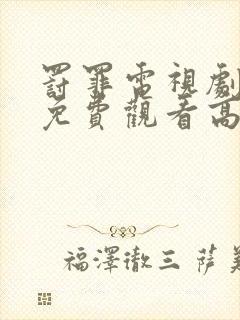 罸罪電視劇
免費觀看高
福澤徹三 薩